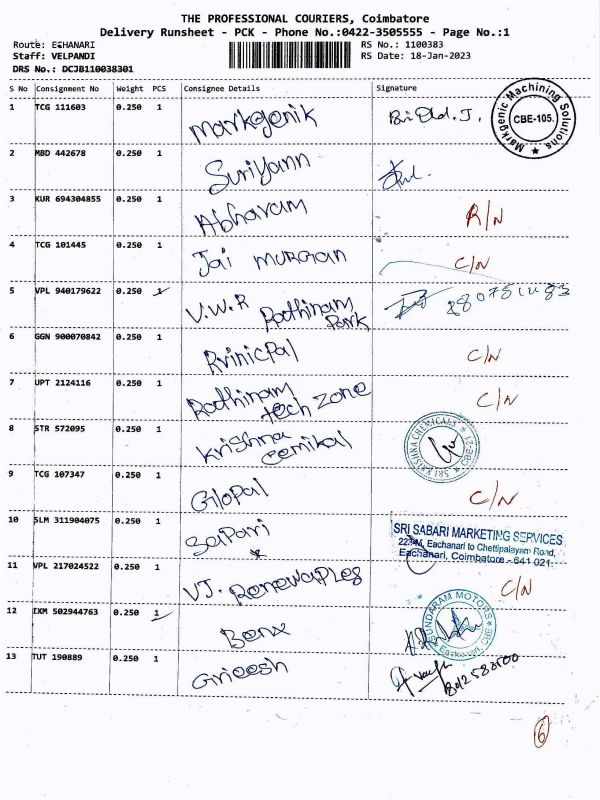 THE PROFESSIONAL COURIERS, Coimbatore
Delivery Runsheet - PCK - Phone No.:0422-3505555 - Page No.:1
Route: EЗHANARI RS No.: 1100383
Staff: VELPANDI RS Date: 18-Jan-2023
DRS No.: DCJB110038301
S No Consignment No Weight PCS Consignee Details Signature
1 TCG 111603 0.250 1 Markgenik
Markgenic Machining Solutions CBE-105.
2 MBD 442678 0.250 1 Suriyann
3 KUR 694304855 0.250 1 Abharam R/N
4 TCG 101445 0.250 1 Jai murgan C/N
5 VPL 940179622 0.250 1 V.W.R Rathinam
Park
6 GGN 900070842 0.250 1 Rvinicpal C/N
7 UPT 2124116 0.250 1 Rathinam
tech zone C/N
8 STR 572095 0.250 1 Krishna
cemikal
SRI KRISHNA CHEMICALS
9 TCG 107347 0.250 1 Glopal C/N
10 SLM 311904075 0.250 1 Sapari
SRI SABARI MARKETING SERVICES
Eachanari to Chettipalayam Road,
Eachanari, Coimbatore - 641 021.
11 VPL 217024522 0.250 1 VJ. Renewaples C/N
12 IXM 502944763 0.250 1 Benx
SUNDARAM MOTORS
13 TUT 190889 0.250 1 Grieesh
6